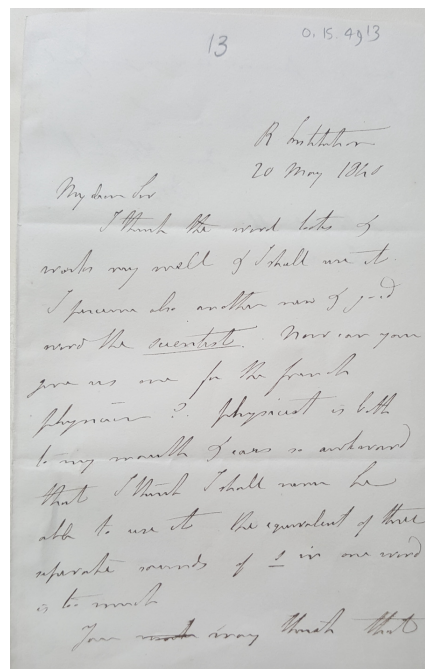 13
O.15.49 13
R Institution
20 May 1840
My dear Sir
I think the word looks &
works very well & I shall use it.
I perceive also another new & good
word the scientist. Now can you
give us one for the french
physicien ? Physicist is both
to my mouth & ears so awkward
that I think I shall never be
able to use it The equivalent of three
separate sounds of s in one word
is too much
You may think that